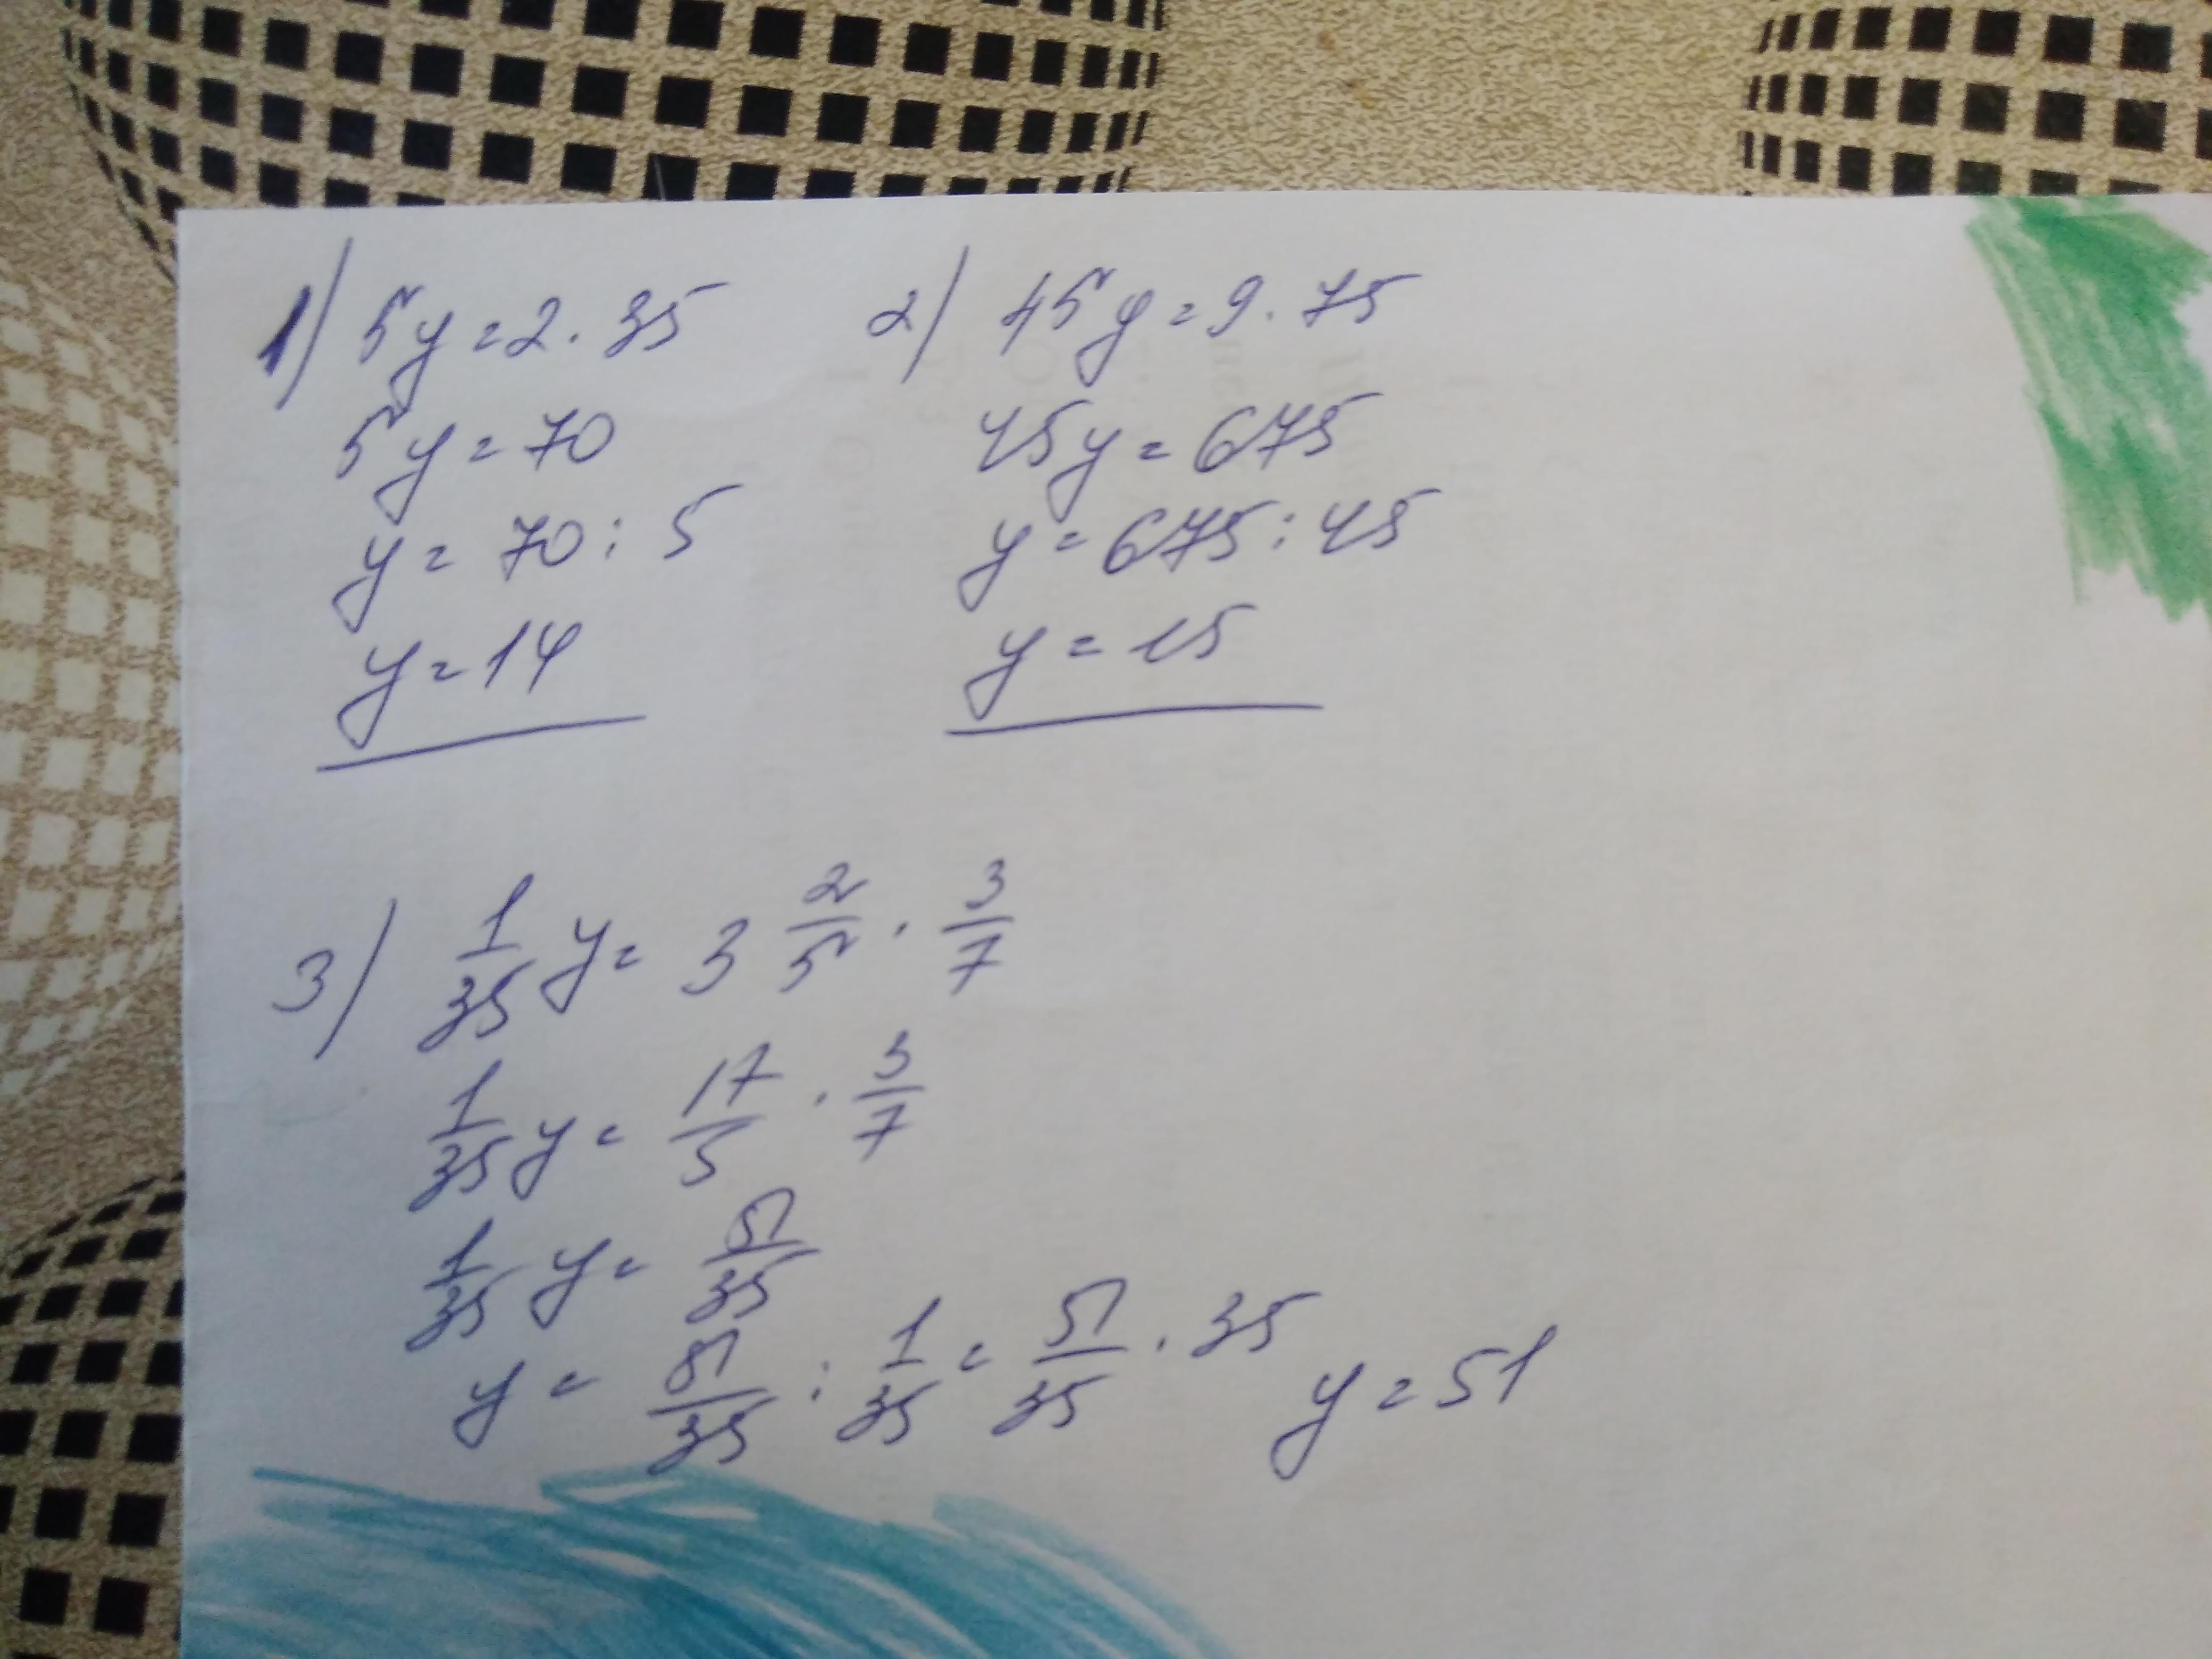 1) 5y = 2 · 35
5y = 70
y = 70 : 5
y = 14
2) 45y = 9 · 75
45y = 675
y = 675 : 45
y = 15
3) 1/35 y = 3 2/5 · 3/7
1/35 y = 17/5 · 3/7
1/35 y = 51/35
y = 51/35 : 1/35 = 51/35 · 35 y = 51